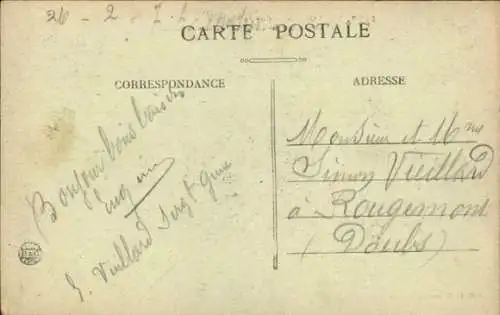 26 - 2 -
CARTE POSTALE
CORRESPONDANCE
ADRESSE
Bonjour bons baisers
E. Vieillard Sergt
Monsieur et Mme
Simon Vieillard
à Rougemont
(Doubs)